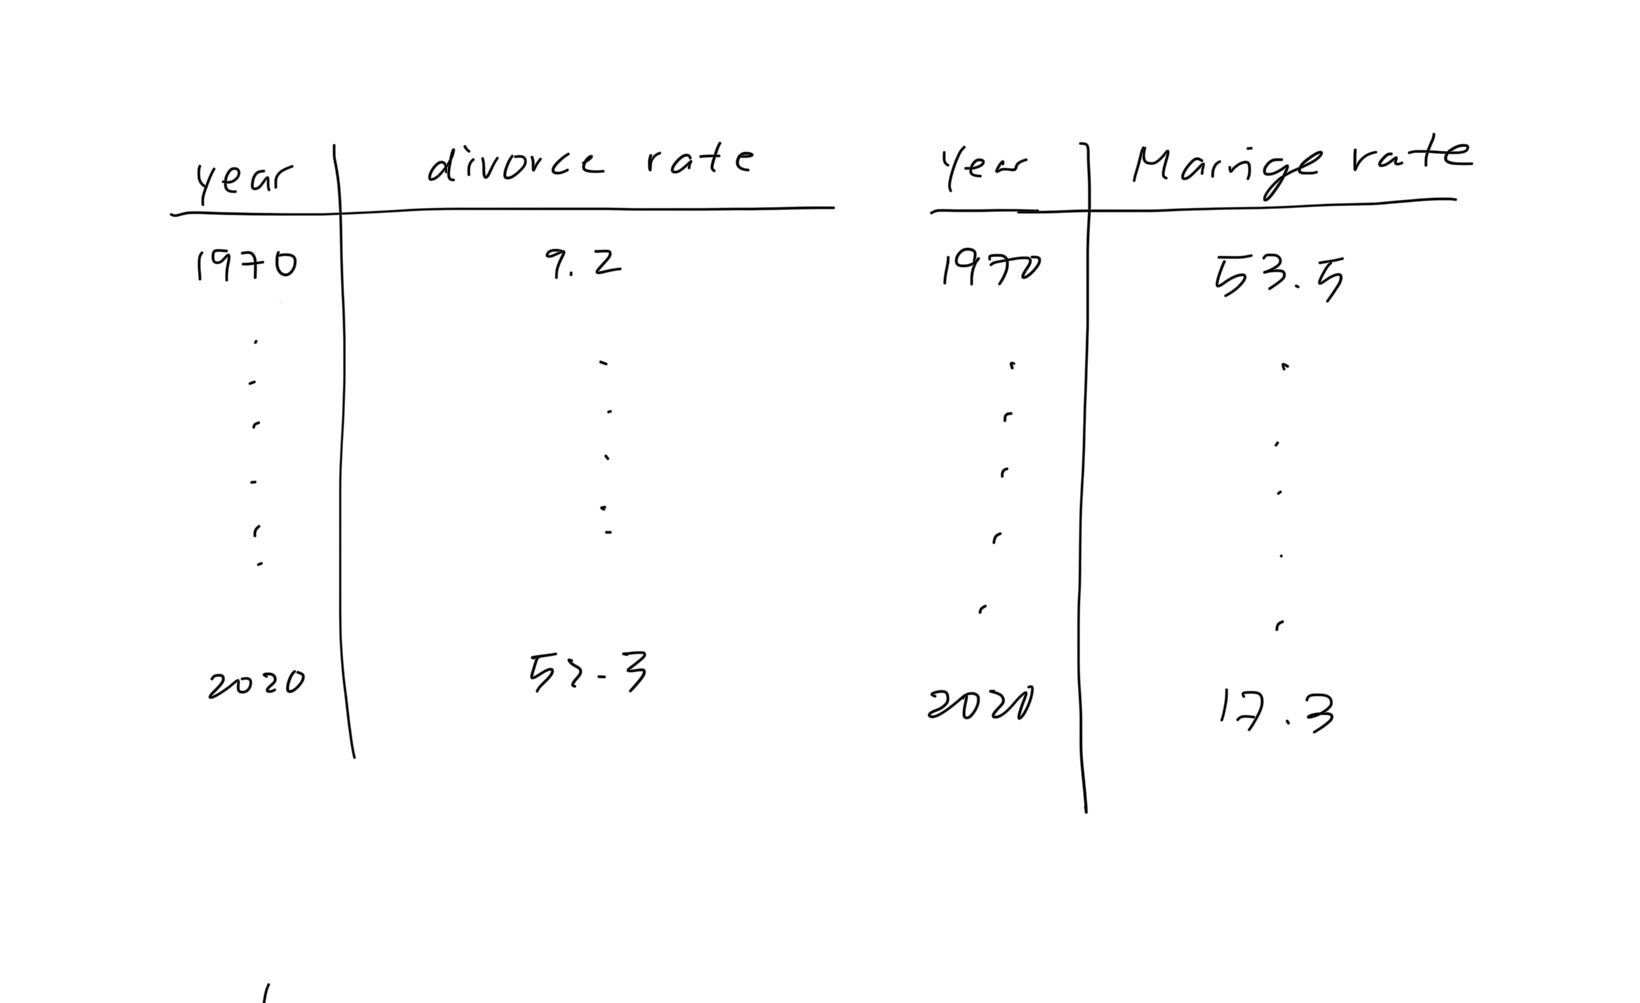 year divorce rate
1970 9.2
2020 52.3
Year Marrige rate
1970 53.5
2020 17.3